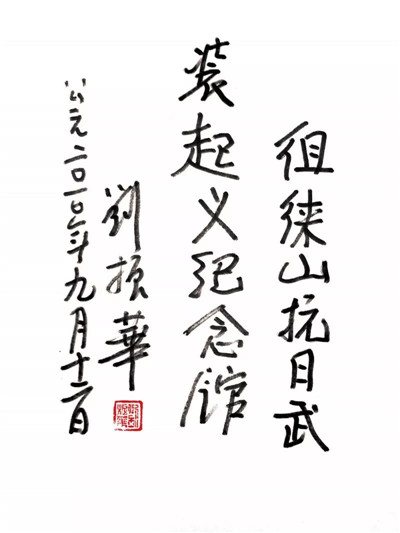 徂徕山抗日武
装起义纪念馆
劉振華
公元二〇一〇年九月十二日